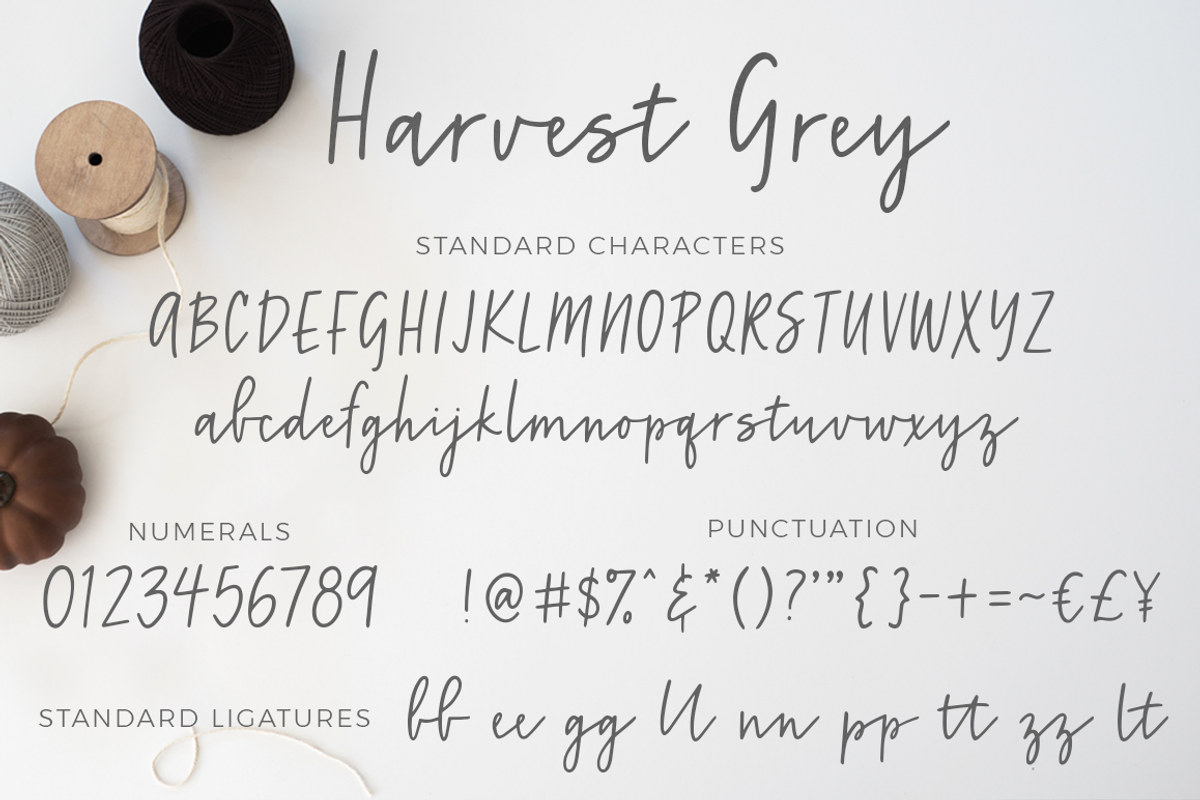 Harvest Grey
STANDARD CHARACTERS
ABCDEFGHIJKLMNOPQRSTUVWXYZ
abcdefghijklmnopqrstuvwxyz
NUMERALS
0123456789
PUNCTUATION
!@#$%^&*()?'"{}-+=~€£¥
STANDARD LIGATURES
bb ee gg ll nn pp tt zz lt